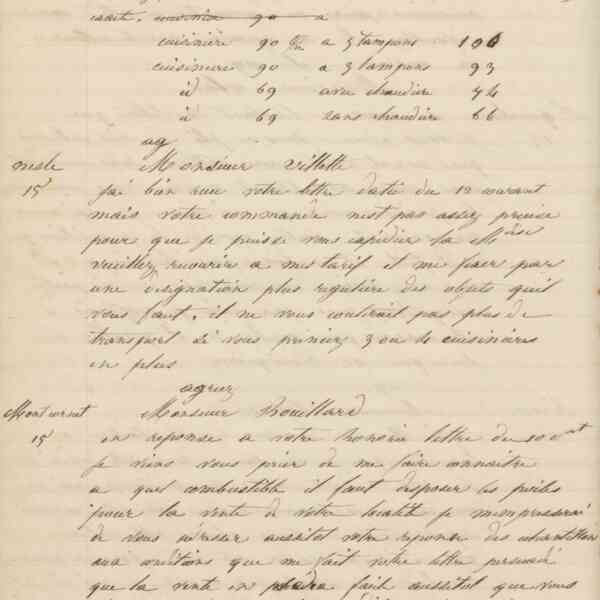 cuisinière 90 c/m a 3 tampons 106
cuisiniere 90 a 3 tampons 93
id 69 avec chaudière 74
id 69 sans chaudière 66
ag
nesle Monsieur Villette
15 J'ai bien recu votre lettre datée du 12 courant
mais votre commande nest pas assez précise
pour que je puisse vous expédier la Mdise
veuillez recourir a mes tarif et me fixer par
une désignation plus reguliere des objets quil
vous faut, il ne vous couterait pas plus de
transport si vous preniez 3 ou 4 cuisinieres
en plus
agreez
Montcornet Monsieur Rouillard
15 en reponse a votre honorée lettre du 10 cant
je viens vous prier de me faire connaitre
a quel combustible il faut disposer les poêles
pour la vente de votre localité je m'empresserai
de vous adresser aussitot votre reponse des echantillons
aux conditions que me fait votre lettre persuadé
que la vente en sera facile aussitot que vous